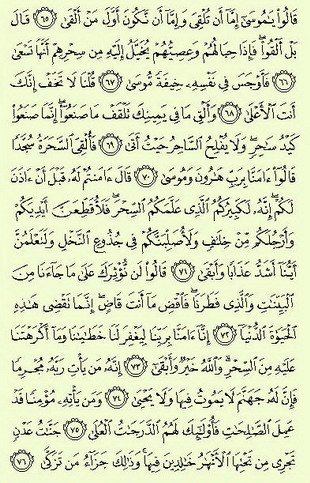 قَالُوا۟ يَـٰمُوسَىٰٓ إِمَّآ أَن تُلْقِىَ وَإِمَّآ أَن نَّكُونَ أَوَّلَ مَنْ أَلْقَىٰ ٦٥ قَالَ
بَلْ أَلْقُوا۟ فَإِذَا حِبَالُهُمْ وَعِصِيُّهُمْ يُخَيَّلُ إِلَيْهِ مِن سِحْرِهِمْ أَنَّهَا تَسْعَىٰ
٦٦ فَأَوْجَسَ فِى نَفْسِهِۦ خِيفَةً مُّوسَىٰ ٦٧ قُلْنَا لَا تَخَفْ إِنَّكَ
أَنتَ ٱلْأَعْلَىٰ ٦٨ وَأَلْقِ مَا فِى يَمِينِكَ تَلْقَفْ مَا صَنَعُوٓا۟ إِنَّمَا صَنَعُوا۟
كَيْدُ سَـٰحِرٍ وَلَا يُفْلِحُ ٱلسَّاحِرُ حَيْثُ أَتَىٰ ٦٩ فَأُلْقِىَ ٱلسَّحَرَةُ سُجَّدًا
قَالُوٓا۟ ءَامَنَّا بِرَبِّ هَـٰرُونَ وَمُوسَىٰ ٧٠ قَالَ ءَامَنتُمْ لَهُۥ قَبْلَ أَنْ ءَاذَنَ
لَكُمْ إِنَّهُۥ لَكَبِيرُكُمُ ٱلَّذِى عَلَّمَكُمُ ٱلسِّحْرَ فَلَأُقَطِّعَنَّ أَيْدِيَكُمْ
وَأَرْجُلَكُم مِّنْ خِلَـٰفٍ وَلَأُصَلِّبَنَّكُمْ فِى جُذُوعِ ٱلنَّخْلِ وَلَتَعْلَمُنَّ
أَيُّنَآ أَشَدُّ عَذَابًا وَأَبْقَىٰ ٧١ قَالُوا۟ لَن نُّؤْثِرَكَ عَلَىٰ مَا جَآءَنَا مِنَ
ٱلْبَيِّنَـٰتِ وَٱلَّذِى فَطَرَنَا فَٱقْضِ مَآ أَنتَ قَاضٍ إِنَّمَا تَقْضِى هَـٰذِهِ
ٱلْحَيَوٰةَ ٱلدُّنْيَآ ٧٢ إِنَّآ ءَامَنَّا بِرَبِّنَا لِيَغْفِرَ لَنَا خَطَـٰيَـٰنَا وَمَآ أَكْرَهْتَنَا
عَلَيْهِ مِنَ ٱلسِّحْرِ وَٱللَّهُ خَيْرٌ وَأَبْقَىٰٓ ٧٣ إِنَّهُۥ مَن يَأْتِ رَبَّهُۥ مُجْرِمًا
فَإِنَّ لَهُۥ جَهَنَّمَ لَا يَمُوتُ فِيهَا وَلَا يَحْيَىٰ ٧٤ وَمَن يَأْتِهِۦ مُؤْمِنًا قَدْ
عَمِلَ ٱلصَّـٰلِحَـٰتِ فَأُو۟لَـٰٓئِكَ لَهُمُ ٱلدَّرَجَـٰتُ ٱلْعُلَىٰ ٧٥ جَنَّـٰتُ عَدْنٍ
تَجْرِى مِن تَحْتِهَا ٱلْأَنْهَـٰرُ خَـٰلِدِينَ فِيهَا وَذَٰلِكَ جَزَآءُ مَن تَزَكَّىٰ ٧٦